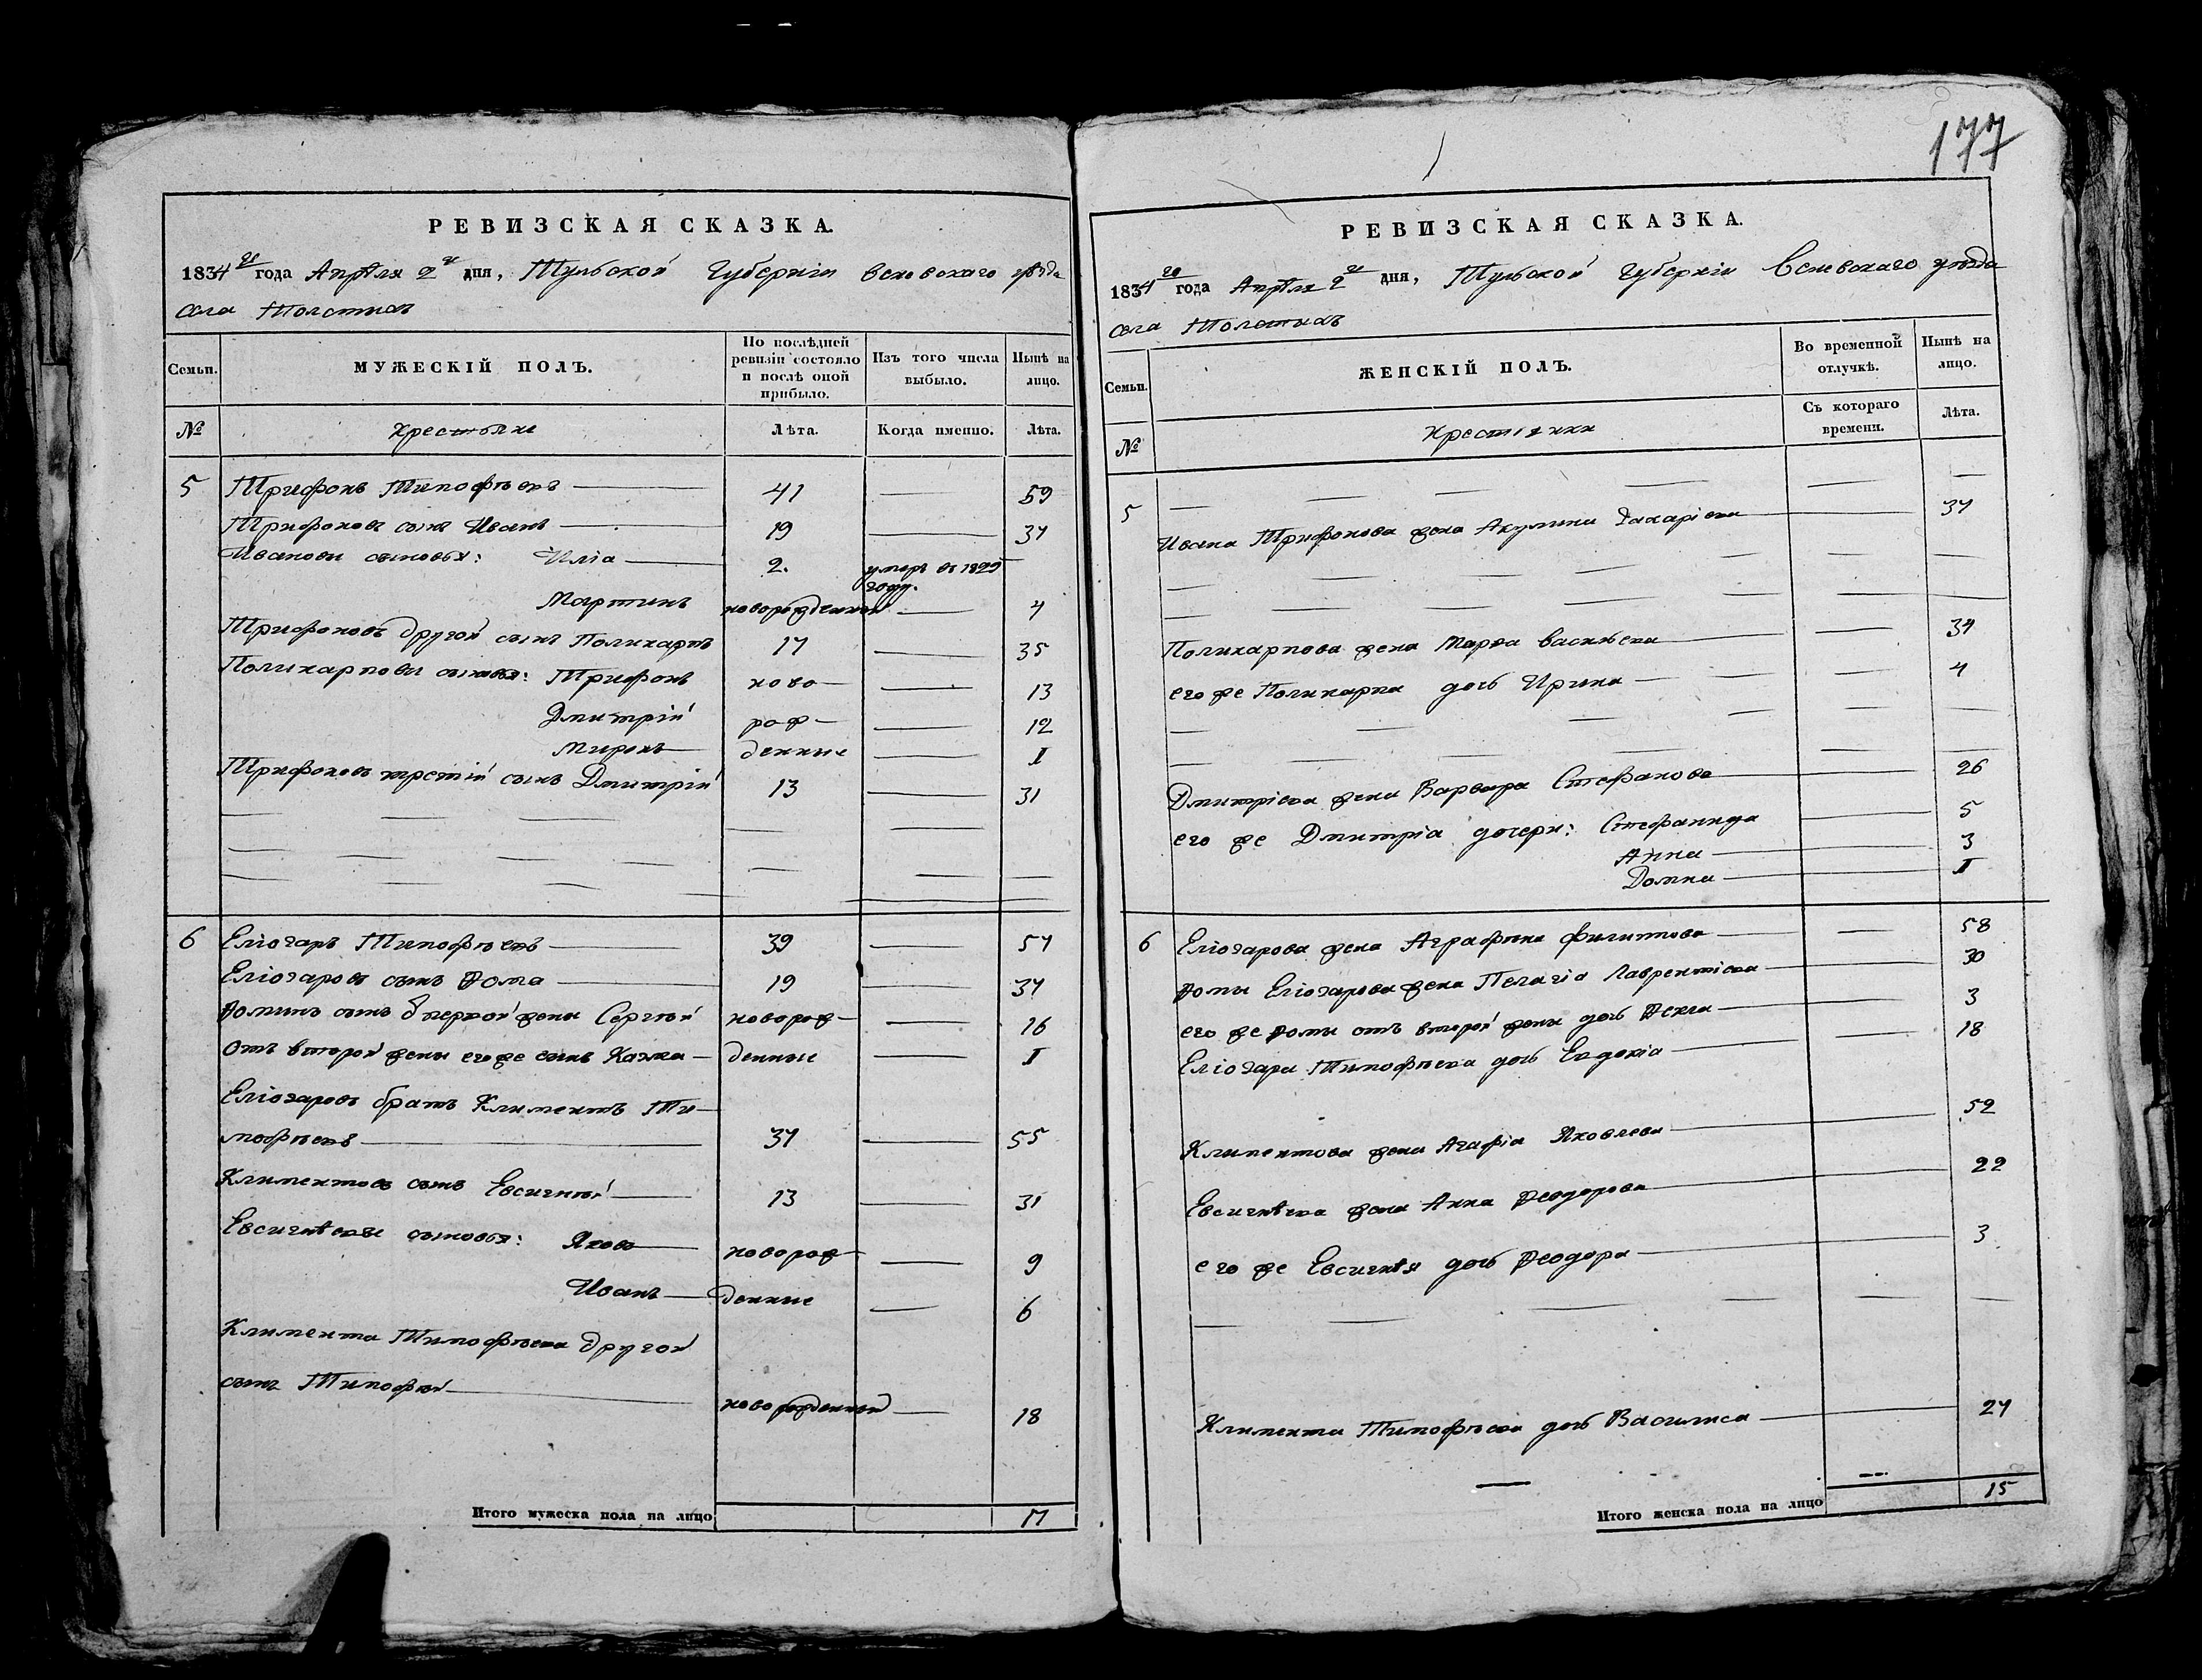 177
РЕВИЗСКАЯ СКАЗКА.
1834го года Апрѣля 2го дня, Тульской Губерніи Веневскаго уѣзда
села Толстыхъ
Семьи.
МУЖЕСКІЙ ПОЛЪ.
По послѣдней ревизіи состояло и послѣ оной прибыло.
Изъ того числа выбыло.
Нынѣ на лицо.
№
Крестьяне
Лѣта.
Когда именно.
Лѣта.
5 Трифонъ Тимофѣевъ 41 59
Трифоновъ сынъ Иванъ 19 37
Ивановы сыновья: Иліа 2. умеръ въ 1825 году.
Мартинъ новорожденной 4
Трифоновъ другой сынъ Поликарпъ 17 35
Поликарповы сыновья: Трифонъ ново- 13
Дмитрій рож- 12
Миронъ денные 1
Трифоновъ третій сынъ Дмитрій 13 31
6 Еліозаръ Тимофѣевъ 39 57
Еліозаровъ сынъ Ѳома 19 37
Ѳоминъ сынъ отъ первой жены Сергѣй новорож- 16
Отъ второй жены его же сынъ Козма денные 1
Еліозаровъ братъ Климентъ Ти-
мофѣевъ 37 55
Климентовъ сынъ Евсигнѣй 13 31
Евсигнѣевы сыновья: Яковъ новорож- 9
Иванъ денные 6
Климента Тимофѣева другой
сынъ Тимофѣй новорожденный 18
Итого мужеска пола на лицо 17
РЕВИЗСКАЯ СКАЗКА.
1834го года Апрѣля 2го дня, Тульской Губерніи Веневскаго уѣзда
села Толстыхъ
Семьи.
ЖЕНСКІЙ ПОЛЪ.
Во временной отлучкѣ.
Нынѣ на лицо.
№
Крестьянки
Съ котораго времени.
Лѣта.
5
Ивана Трифонова жена Акулина Захаріева 37
Поликарпова жена Марѳа Васильева 34
его же Поликарпа дочь Ирина 4
Дмитріева жена Варвара Стефанова 26
его же Дмитріа дочери: Стефанида 5
Анна 3
Домна 1
6 Еліозарова жена Аграфѣна Филиппова 58
Ѳомы Еліозарова жена Пелагіа Лаврентіева 30
его же Ѳомы отъ второй жены дочь Ѳекла 3
Еліозара Тимофѣева дочь Евдокіа 18
Климентова жена Агафіа Яковлева 52
Евсигнѣева жена Анна Ѳеодорова 22
его же Евсигнѣя дочь Ѳеодора 3
Климента Тимофѣева дочь Василиса 24
Итого женска пола на лицо 15